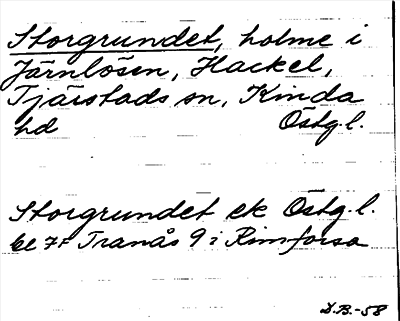 Storgrundet, holme i
Järnlösen, Hackel,
Tjärstads sn, Kinda
hd Östg.l.
Storgrundet ek Östg.l.
be 7f Tranås 9 i Rimforsa
D.B.-58